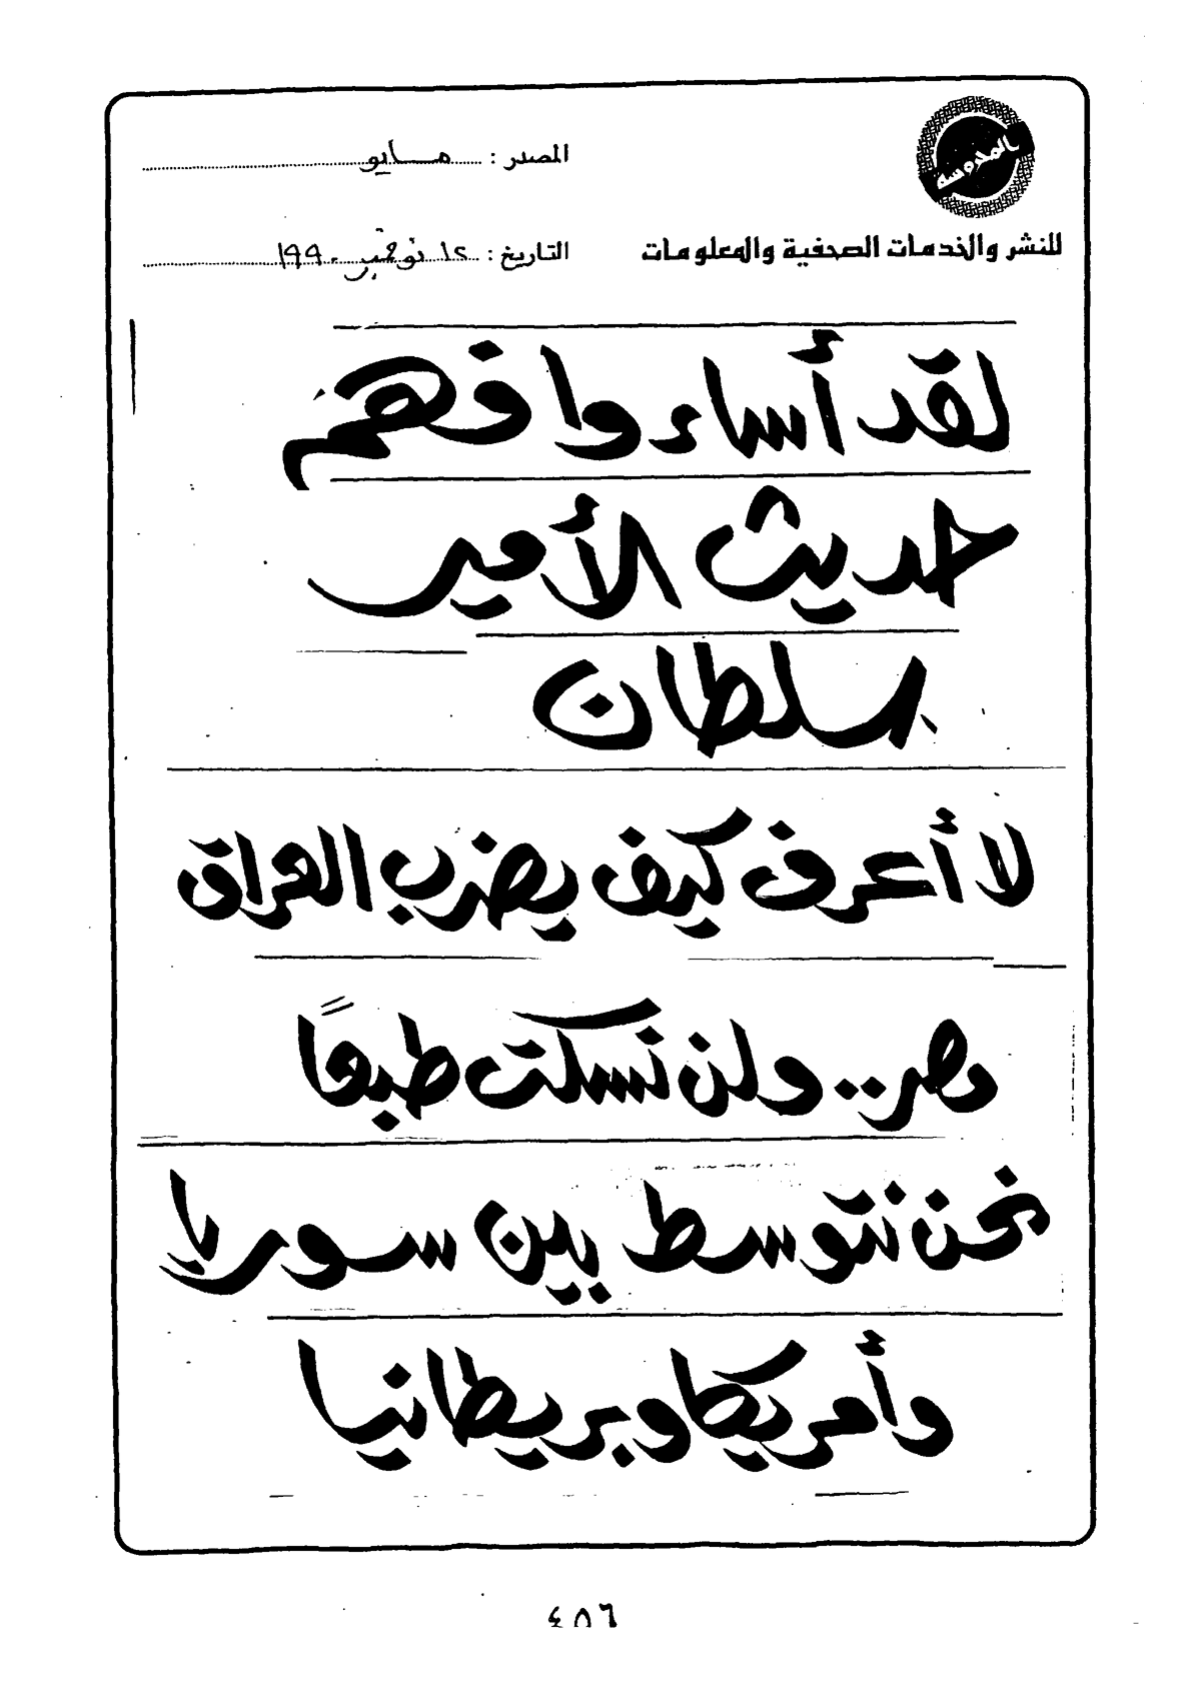 المدوسة
للنشر والخدمات الصحفية والمعلومات
المصدر : مايو
التاريخ : ١٢ نوفمبر ١٩٩٠
لقد أساءوا فهم
حديث الأمير
سلطان
لا أعرف كيف يضرب العراق
مصر .. ولن نسكت طبعاً
نحن نتوسط بين سوريا
وأمريكا وبريطانيا
٤٥٦